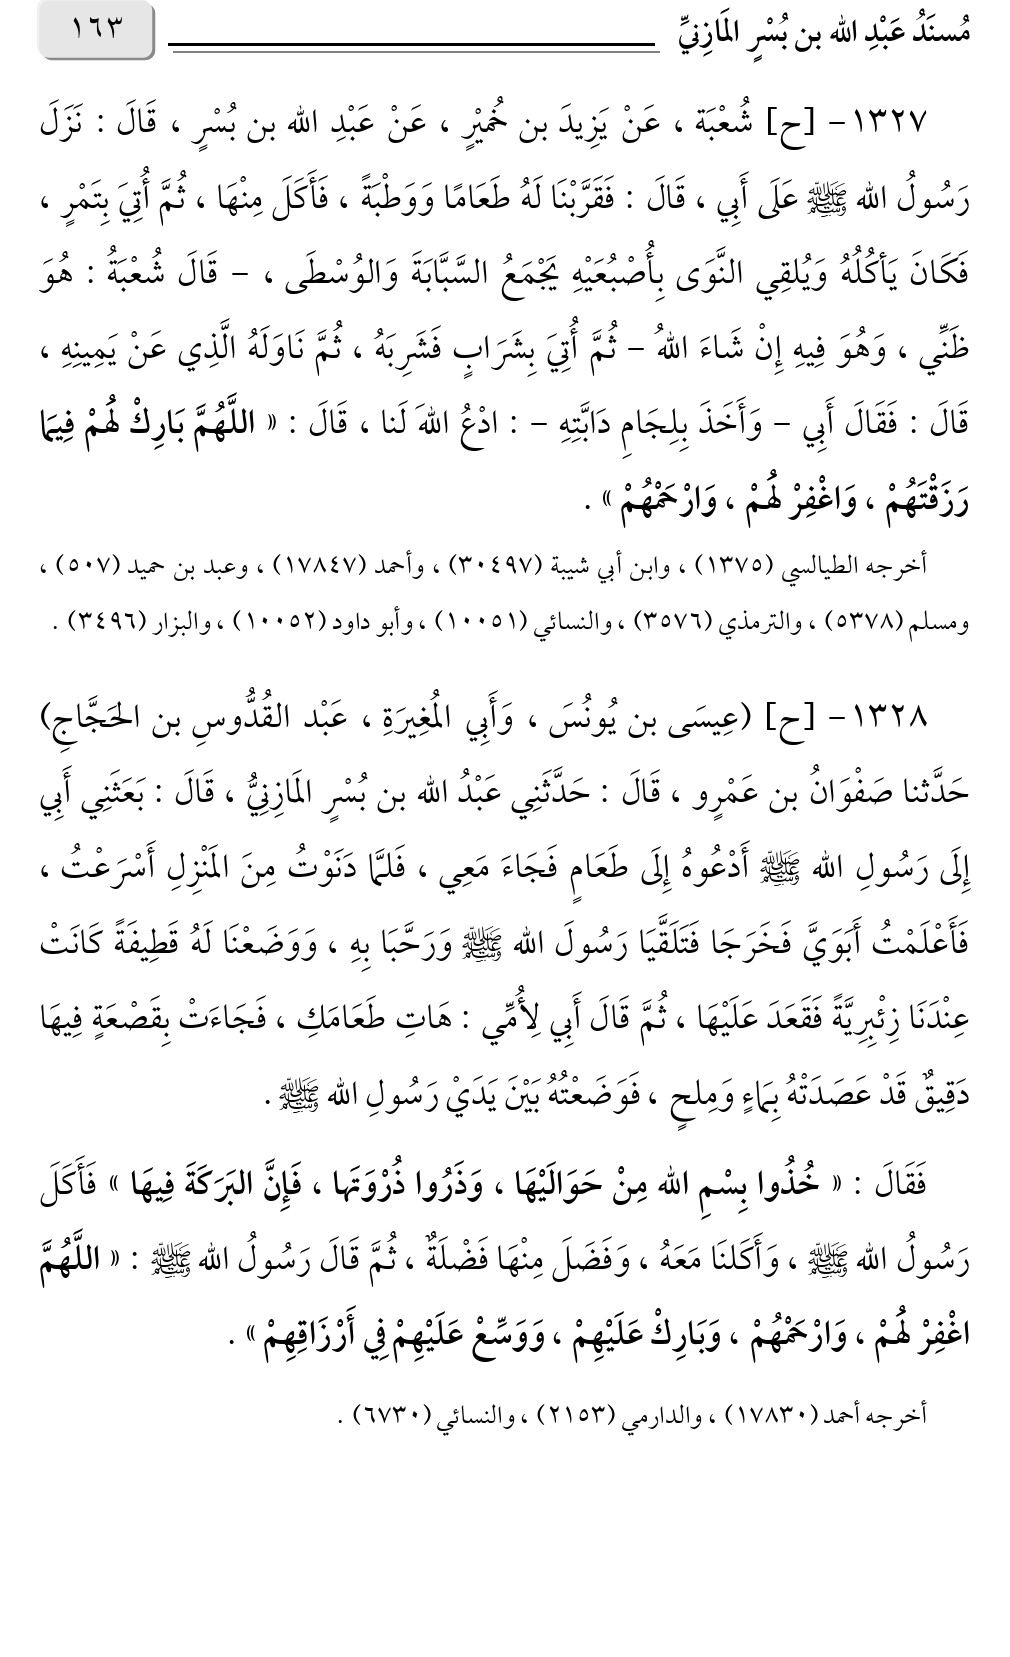 مُسنَدُ عَبْدِ الله بن بُسْرٍ المَازِنيِّ ١٦٣
١٣٢٧- [ح] شُعْبَة ، عَنْ يَزِيدَ بن خُمَيْرٍ ، عَنْ عَبْدِ الله بن بُسْرٍ ، قَالَ : نَزَلَ
رَسُولُ الله ﷺ عَلَى أَبِي ، قَالَ : فَقَرَّبْنَا لَهُ طَعَامًا وَوَطْبَةً ، فَأَكَلَ مِنْهَا ، ثُمَّ أُتِيَ بِتَمْرٍ ،
فَكَانَ يَأكُلُهُ وَيُلقِي النَّوَى بِأُصْبُعَيْهِ يَجْمَعُ السَّبَّابَةَ وَالوُسْطَى ، – قَالَ شُعْبَةُ : هُوَ
ظَنِّي ، وَهُوَ فِيهِ إِنْ شَاءَ اللهُ – ثُمَّ أُتِيَ بِشَرَابٍ فَشَرِبَهُ ، ثُمَّ نَاوَلَهُ الَّذِي عَنْ يَمِينِهِ ،
قَالَ : فَقَالَ أَبِي – وَأَخَذَ بِلِجَامِ دَابَّتِهِ – : ادْعُ اللهَ لَنا ، قَالَ : « اللَّهُمَّ بَارِكْ لَهُمْ فِيمَا
رَزَقْتَهُمْ ، وَاغْفِرْ لَهُمْ ، وَارْحَمْهُمْ » .
أخرجه الطيالسي (١٣٧٥) ، وابن أبي شيبة (٣٠٤٩٧) ، وأحمد (١٧٨٤٧) ، وعبد بن حميد (٥٠٧) ،
ومسلم (٥٣٧٨) ، والترمذي (٣٥٧٦) ، والنسائي (١٠٠٥١) ، وأبو داود (١٠٠٥٢) ، والبزار (٣٤٩٦) .
١٣٢٨- [ح] (عِيسَى بن يُونُسَ ، وَأَبِي المُغِيرَةِ ، عَبْد القُدُّوسِ بن الحَجَّاجِ)
حَدَّثنا صَفْوَانُ بن عَمْرٍو ، قَالَ : حَدَّثَنِي عَبْدُ الله بن بُسْرٍ المَازِنِيُّ ، قَالَ : بَعَثَنِي أَبِي
إِلَى رَسُولِ الله ﷺ أَدْعُوهُ إِلَى طَعَامٍ فَجَاءَ مَعِي ، فَلمَّا دَنَوْتُ مِنَ المَنْزِلِ أَسْرَعْتُ ،
فَأَعْلَمْتُ أَبَوَيَّ فَخَرَجَا فَتَلَقَّيَا رَسُولَ الله ﷺ وَرَحَّبَا بِهِ ، وَوَضَعْنَا لَهُ قَطِيفَةً كَانَتْ
عِنْدَنَا زِئْبِرِيَّةً فَقَعَدَ عَلَيْهَا ، ثُمَّ قَالَ أَبِي لِأُمِّي : هَاتِ طَعَامَكِ ، فَجَاءَتْ بِقَصْعَةٍ فِيهَا
دَقِيقٌ قَدْ عَصَدَتْهُ بِمَاءٍ وَمِلحٍ ، فَوَضَعْتُهُ بَيْنَ يَدَيْ رَسُولِ الله ﷺ .
فَقَالَ : « خُذُوا بِسْمِ الله مِنْ حَوَالَيْهَا ، وَذَرُوا ذُرْوَتَها ، فَإِنَّ البَرَكَةَ فِيهَا » فَأَكَلَ
رَسُولُ الله ﷺ ، وَأَكَلنَا مَعَهُ ، وَفَضَلَ مِنْهَا فَضْلَةٌ ، ثُمَّ قَالَ رَسُولُ الله ﷺ : « اللَّهُمَّ
اغْفِرْ لَهُمْ ، وَارْحَمْهُمْ ، وَبَارِكْ عَلَيْهِمْ ، وَوَسِّعْ عَلَيْهِمْ فِي أَرْزَاقِهِمْ » .
أخرجه أحمد (١٧٨٣٠) ، والدارمي (٢١٥٣) ، والنسائي (٦٧٣٠) .